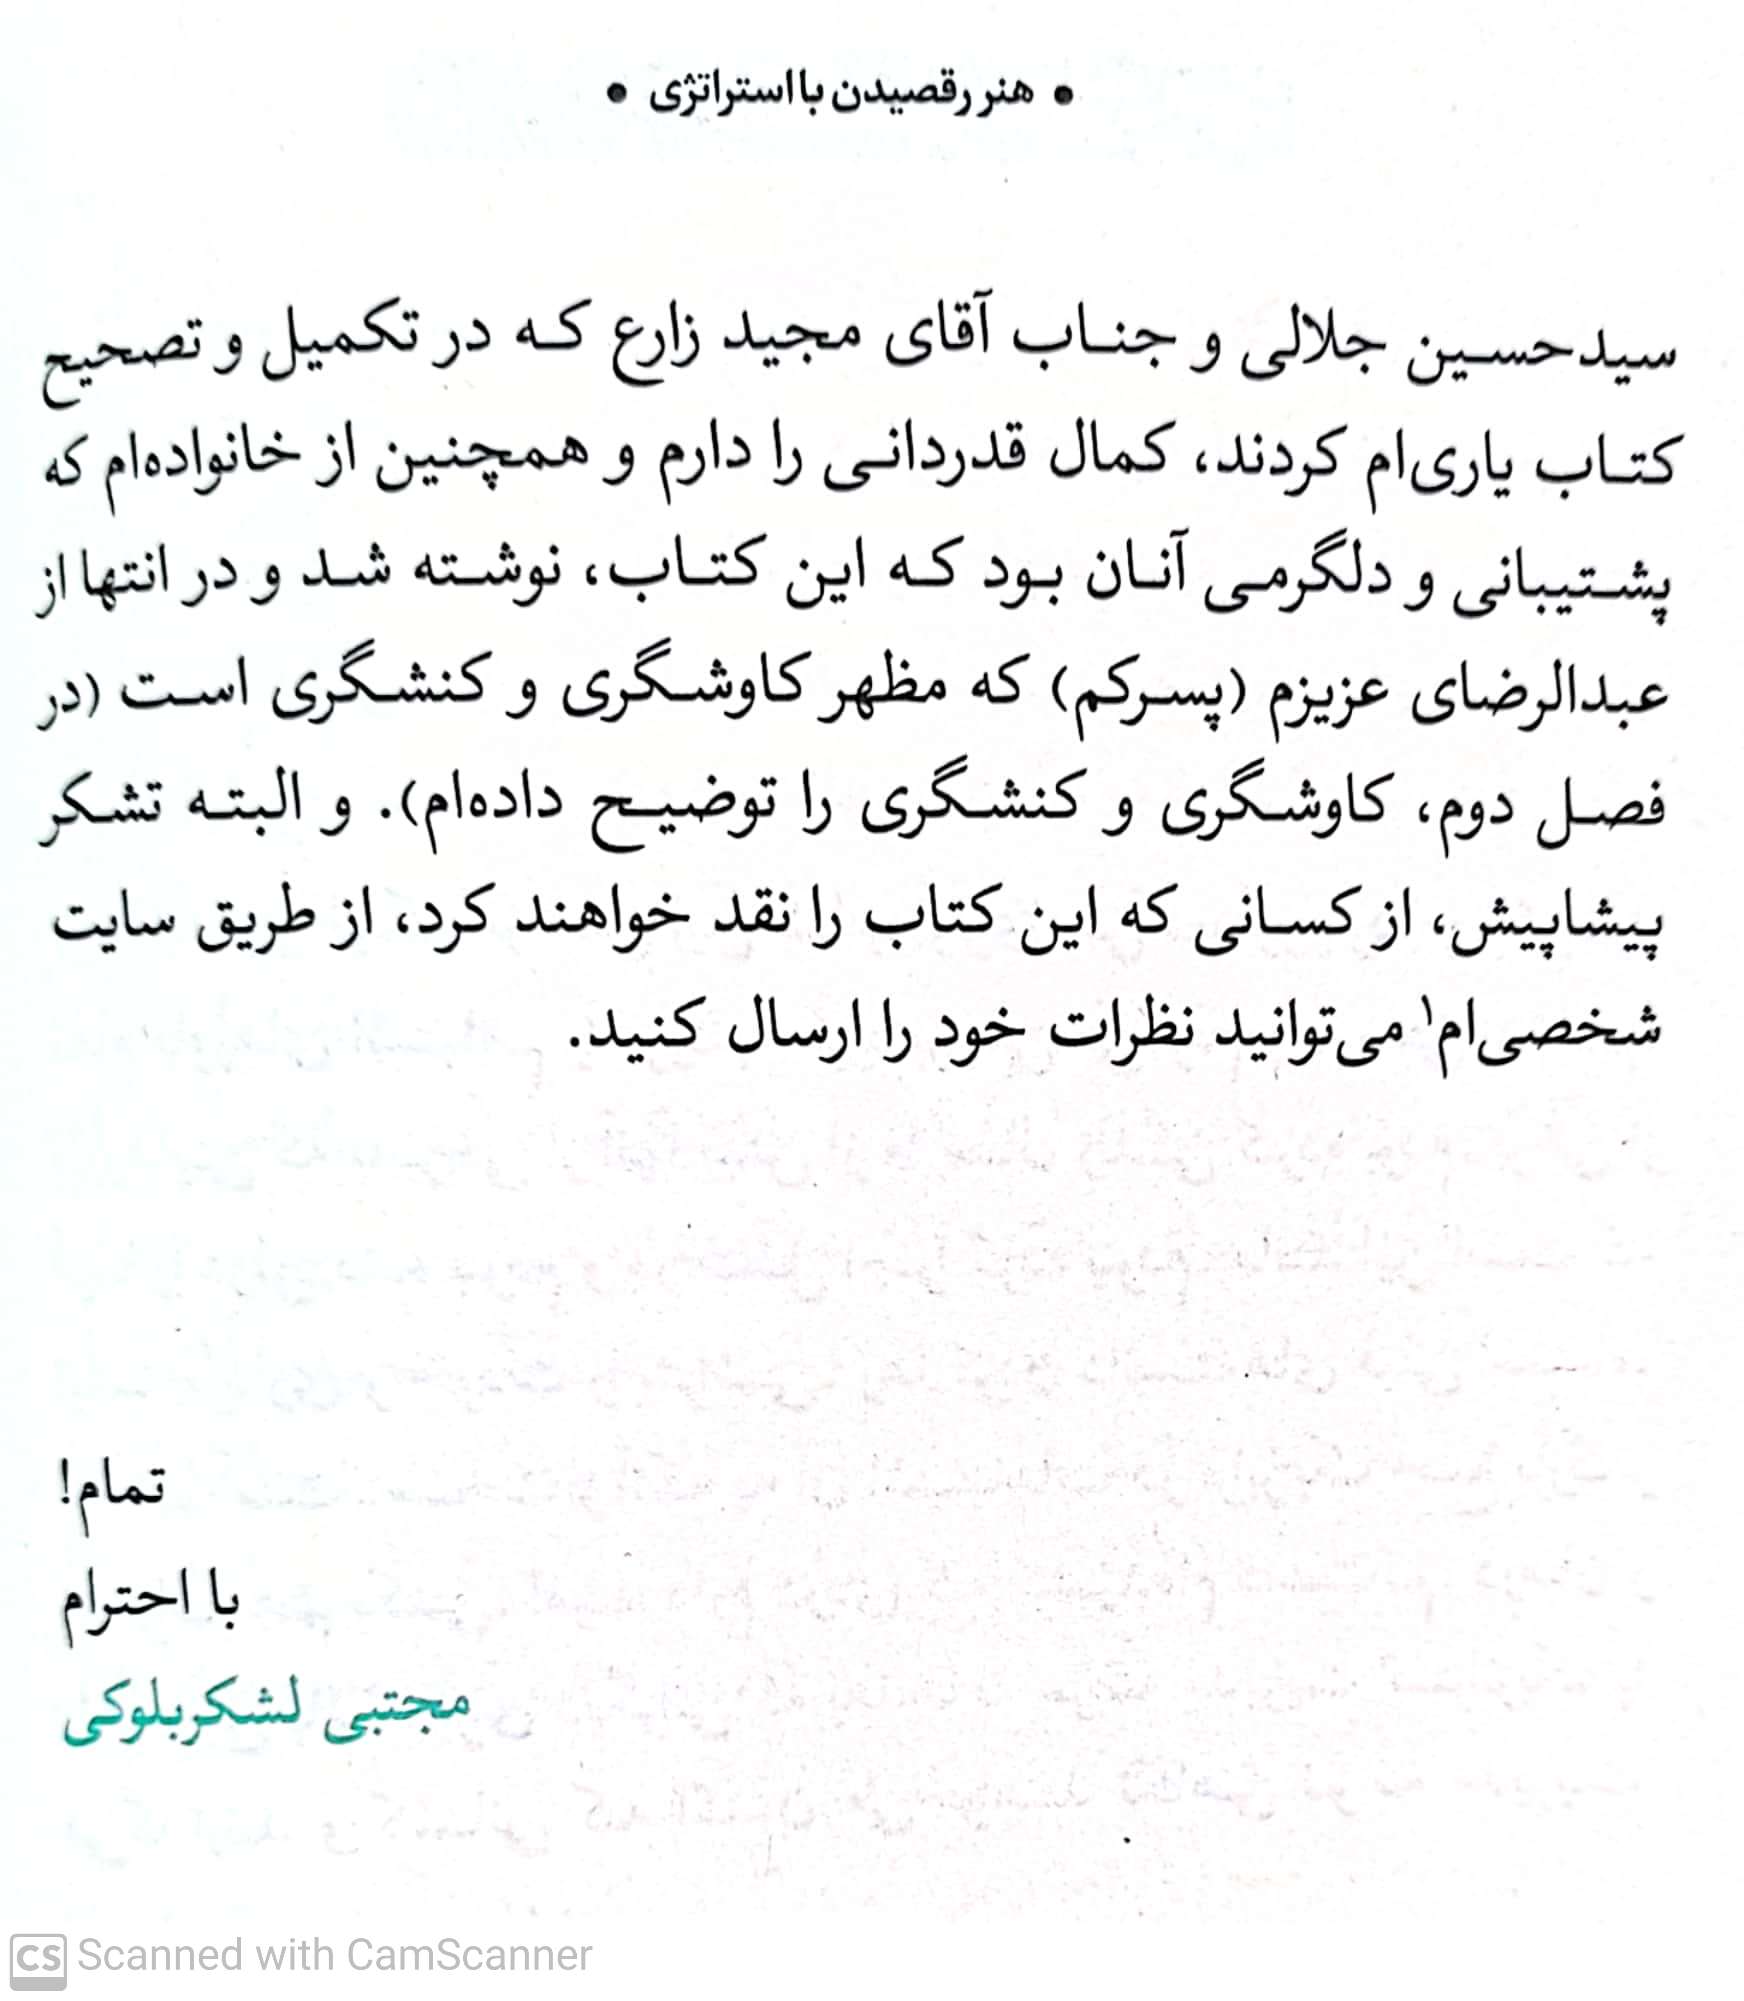 • هنر رقصیدن با استراتژی •
سیدحسین جلالی و جناب آقای مجید زارع که در تکمیل و تصحیح
کتاب یاری‌ام کردند، کمال قدردانی را دارم و همچنین از خانواده‌ام که
پشتیبانی و دلگرمی آنان بود که این کتاب، نوشته شد و در انتها از
عبدالرضای عزیزم (پسرکم) که مظهر کاوشگری و کنشگری است (در
فصل دوم، کاوشگری و کنشگری را توضیح داده‌ام). و البته تشکر
پیشاپیش، از کسانی که این کتاب را نقد خواهند کرد، از طریق سایت
شخصی‌ام۱ می‌توانید نظرات خود را ارسال کنید.
تمام!
با احترام
مجتبی لشکربلوکی
CS Scanned with CamScanner